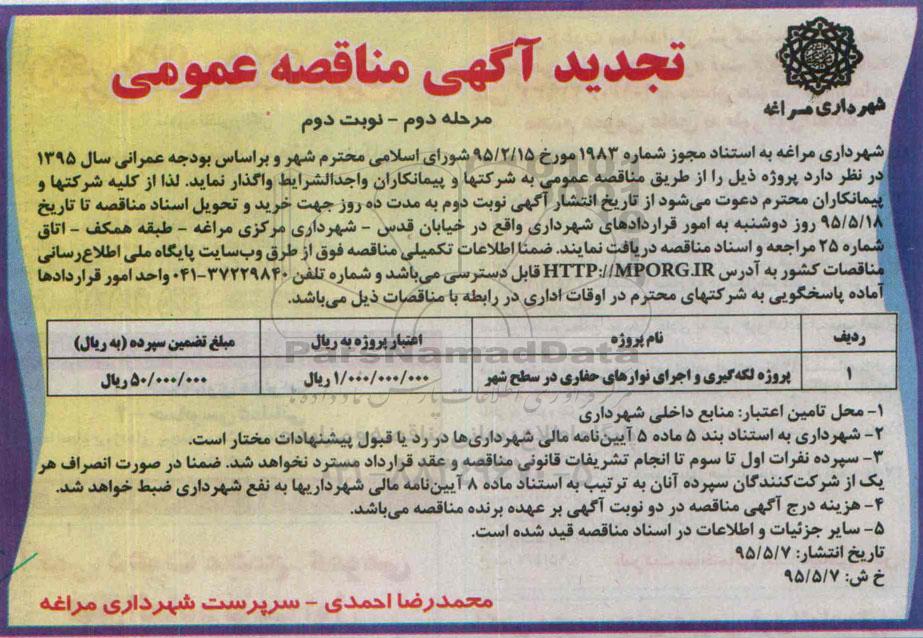 تجدید آگهی مناقصه عمومی
شهرداری مراغه
مرحله دوم - نوبت دوم
شهرداری مراغه به استناد مجوز شماره ۱۹۸۳ مورخ ۹۵/۲/۱۵ شورای اسلامی محترم شهر و براساس بودجه عمرانی سال ۱۳۹۵
در نظر دارد پروژه ذیل را از طریق مناقصه عمومی به شرکتها و پیمانکاران واجدالشرایط واگذار نماید. لذا از کلیه شرکتها و
پیمانکاران محترم دعوت می‌شود از تاریخ انتشار آگهی نوبت دوم به مدت ده روز جهت خرید و تحویل اسناد مناقصه تا تاریخ
۹۵/۵/۱۸ روز دوشنبه به امور قراردادهای شهرداری واقع در خیابان قدس - شهرداری مرکزی مراغه - طبقه همکف - اتاق
شماره ۲۵ مراجعه و اسناد مناقصه دریافت نمایند. ضمنا اطلاعات تکمیلی مناقصه فوق از طرق وب‌سایت پایگاه ملی اطلاع‌رسانی
مناقصات کشور به آدرس HTTP://MPORG.IR قابل دسترسی می‌باشد و شماره تلفن ۳۷۲۲۹۸۴۰-۰۴۱ واحد امور قراردادها
آماده پاسخگویی به شرکتهای محترم در اوقات اداری در رابطه با مناقصات ذیل می‌باشد.
ردیف نام پروژه اعتبار پروژه به ریال مبلغ تضمین سپرده (به ریال)
ParsNamadData
۱ پروژه لکه‌گیری و اجرای نوارهای حفاری در سطح شهر ۱/۰۰۰/۰۰۰/۰۰۰ ریال ۵۰/۰۰۰/۰۰۰ ریال
۱- محل تامین اعتبار: منابع داخلی شهرداری
۲- شهرداری به استناد بند ۵ ماده ۵ آیین‌نامه مالی شهرداری‌ها در رد یا قبول پیشنهادات مختار است.
۳- سپرده نفرات اول تا سوم تا انجام تشریفات قانونی مناقصه و عقد قرارداد مسترد نخواهد شد. ضمنا در صورت انصراف هر
یک از شرکت‌کنندگان سپرده آنان به ترتیب به استناد ماده ۸ آیین‌نامه مالی شهرداریها به نفع شهرداری ضبط خواهد شد.
۴- هزینه درج آگهی مناقصه در دو نوبت آگهی بر عهده برنده مناقصه می‌باشد.
۵- سایر جزئیات و اطلاعات در اسناد مناقصه قید شده است.
تاریخ انتشار: ۹۵/۵/۷
خ ش: ۹۵/۵/۷
محمدرضا احمدی - سرپرست شهرداری مراغه